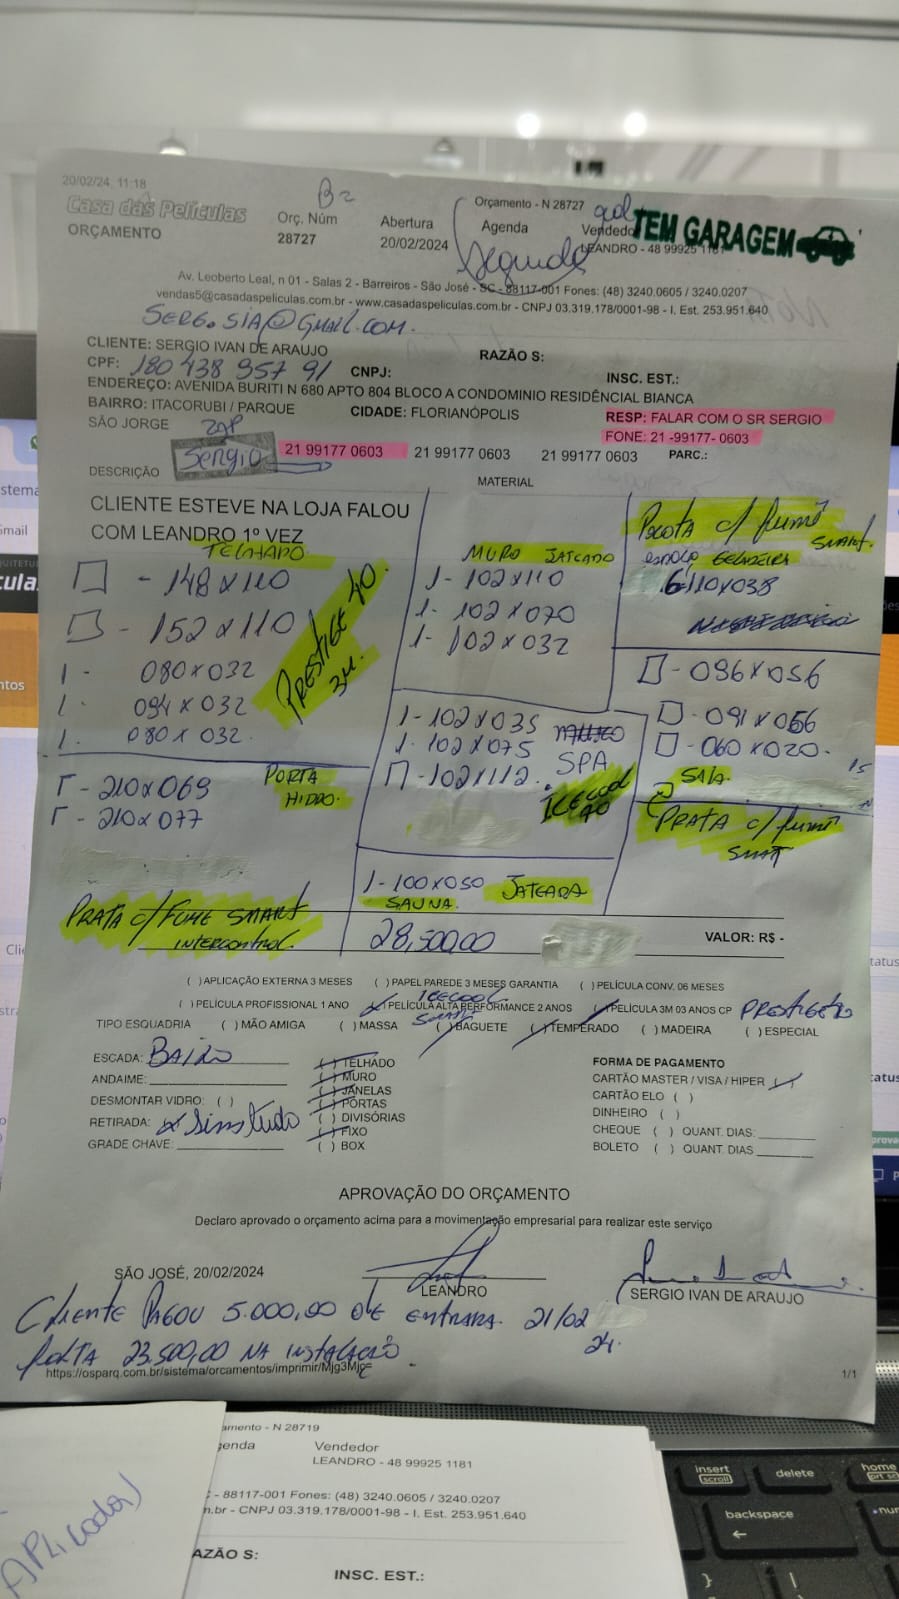 20/02/24, 11:18
Casa das Películas
ORÇAMENTO
Orç. Núm
28727
Abertura
20/02/2024
Orçamento - N 28727
Agenda
Segunda
Vendedo
LEANDRO - 48 99925 1181
TEM GARAGEM
Av. Leoberto Leal, n 01 - Salas 2 - Barreiros - São José - SC - 88117-001 Fones: (48) 3240.0605 / 3240.0207
vendas5@casadaspeliculas.com.br - www.casadaspeliculas.com.br - CNPJ 03.319.178/0001-98 - I. Est. 253.951.640
SERG.SIA@GMAIL.COM.
CLIENTE: SERGIO IVAN DE ARAUJO
RAZÃO S:
CPF: 180 438 957 91
CNPJ:
INSC. EST.:
ENDEREÇO: AVENIDA BURITI N 680 APTO 804 BLOCO A CONDOMINIO RESIDÊNCIAL BIANCA
BAIRRO: ITACORUBI / PARQUE
SÃO JORGE
CIDADE: FLORIANÓPOLIS
RESP: FALAR COM O SR SERGIO
FONE: 21 -99177- 0603
ZAP
Sergio
21 99177 0603
21 99177 0603
21 99177 0603
PARC.:
DESCRIÇÃO
MATERIAL
CLIENTE ESTEVE NA LOJA FALOU
COM LEANDRO 1º VEZ
TELHADO
- 148 x 110
- 152 x 110
1 - 080 x 032
1. 094 x 032
1. 080 x 032.
PRESTIGE 40.
3M.
MURO JATEADO
1 - 102 x 110
1 - 102 x 070
1 - 102 x 032
PRATA c/ fumê
SMART.
GELADEIRA
6 110 x 038
- 096 x 056
- 091 x 056
- 060 x 020.
SALA.
PRATA c/ fumê
SMART
1 - 102 x 035
1 - 102 x 075
- 102 x 112.
SPA
ICECOOL
- 210 x 069
- 210 x 077
PORTA
HIDRO.
PRATA c/ FUME SMART
INTERCONTROL.
1 - 100 x 050 JATEADA
SAUNA.
28,500,00
VALOR: R$ -
( ) APLICAÇÃO EXTERNA 3 MESES ( ) PAPEL PAREDE 3 MESES GARANTIA ( ) PELÍCULA CONV. 06 MESES
ICECOOL
( ) PELÍCULA PROFISSIONAL 1 ANO ( ) PELÍCULA ALTA PERFORMANCE 2 ANOS ( ) PELÍCULA 3M 03 ANOS CP
SMART
TIPO ESQUADRIA ( ) MÃO AMIGA ( ) MASSA ( ) BAGUETE ( ) TEMPERADO ( ) MADEIRA ( ) ESPECIAL
ESCADA: BAIXO
ANDAIME:
DESMONTAR VIDRO: ( )
RETIRADA: x Sim tudo
GRADE CHAVE:
( ) TELHADO
( ) MURO
( ) JANELAS
( ) PORTAS
( ) DIVISÓRIAS
( ) FIXO
( ) BOX
FORMA DE PAGAMENTO
CARTÃO MASTER / VISA / HIPER
CARTÃO ELO ( )
DINHEIRO ( )
CHEQUE ( ) QUANT. DIAS:
BOLETO ( ) QUANT. DIAS
APROVAÇÃO DO ORÇAMENTO
Declaro aprovado o orçamento acima para a movimentação empresarial para realizar este serviço
SÃO JOSÉ, 20/02/2024
LEANDRO
SERGIO IVAN DE ARAUJO
CLIENTE PAGOU 5.000,00 DE ENTRADA. 21/02
24.
FALTA 23.500,00 NA INSTALAÇÃO
https://osparq.com.br/sistema/orcamentos/imprimir/Mjg3Mjc=
1/1
amento - N 28719
genda
Vendedor
LEANDRO - 48 99925 1181
- 88117-001 Fones: (48) 3240.0605 / 3240.0207
n.br - CNPJ 03.319.178/0001-98 - I. Est. 253.951.640
AZÃO S:
INSC. EST.:
insert
scroll
delete
home
backspace